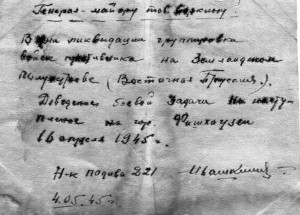 Генерал-майору тов.
В дни ликвидации группировки
войск противника на Земландском
полуострове (Восточная Пруссия).
Доведение боевой задачи на насту-
пление на гор. Фишхаузен
16 апреля 1945 г.
Н-к подива 221 Ивашкин
4.05.45 г.